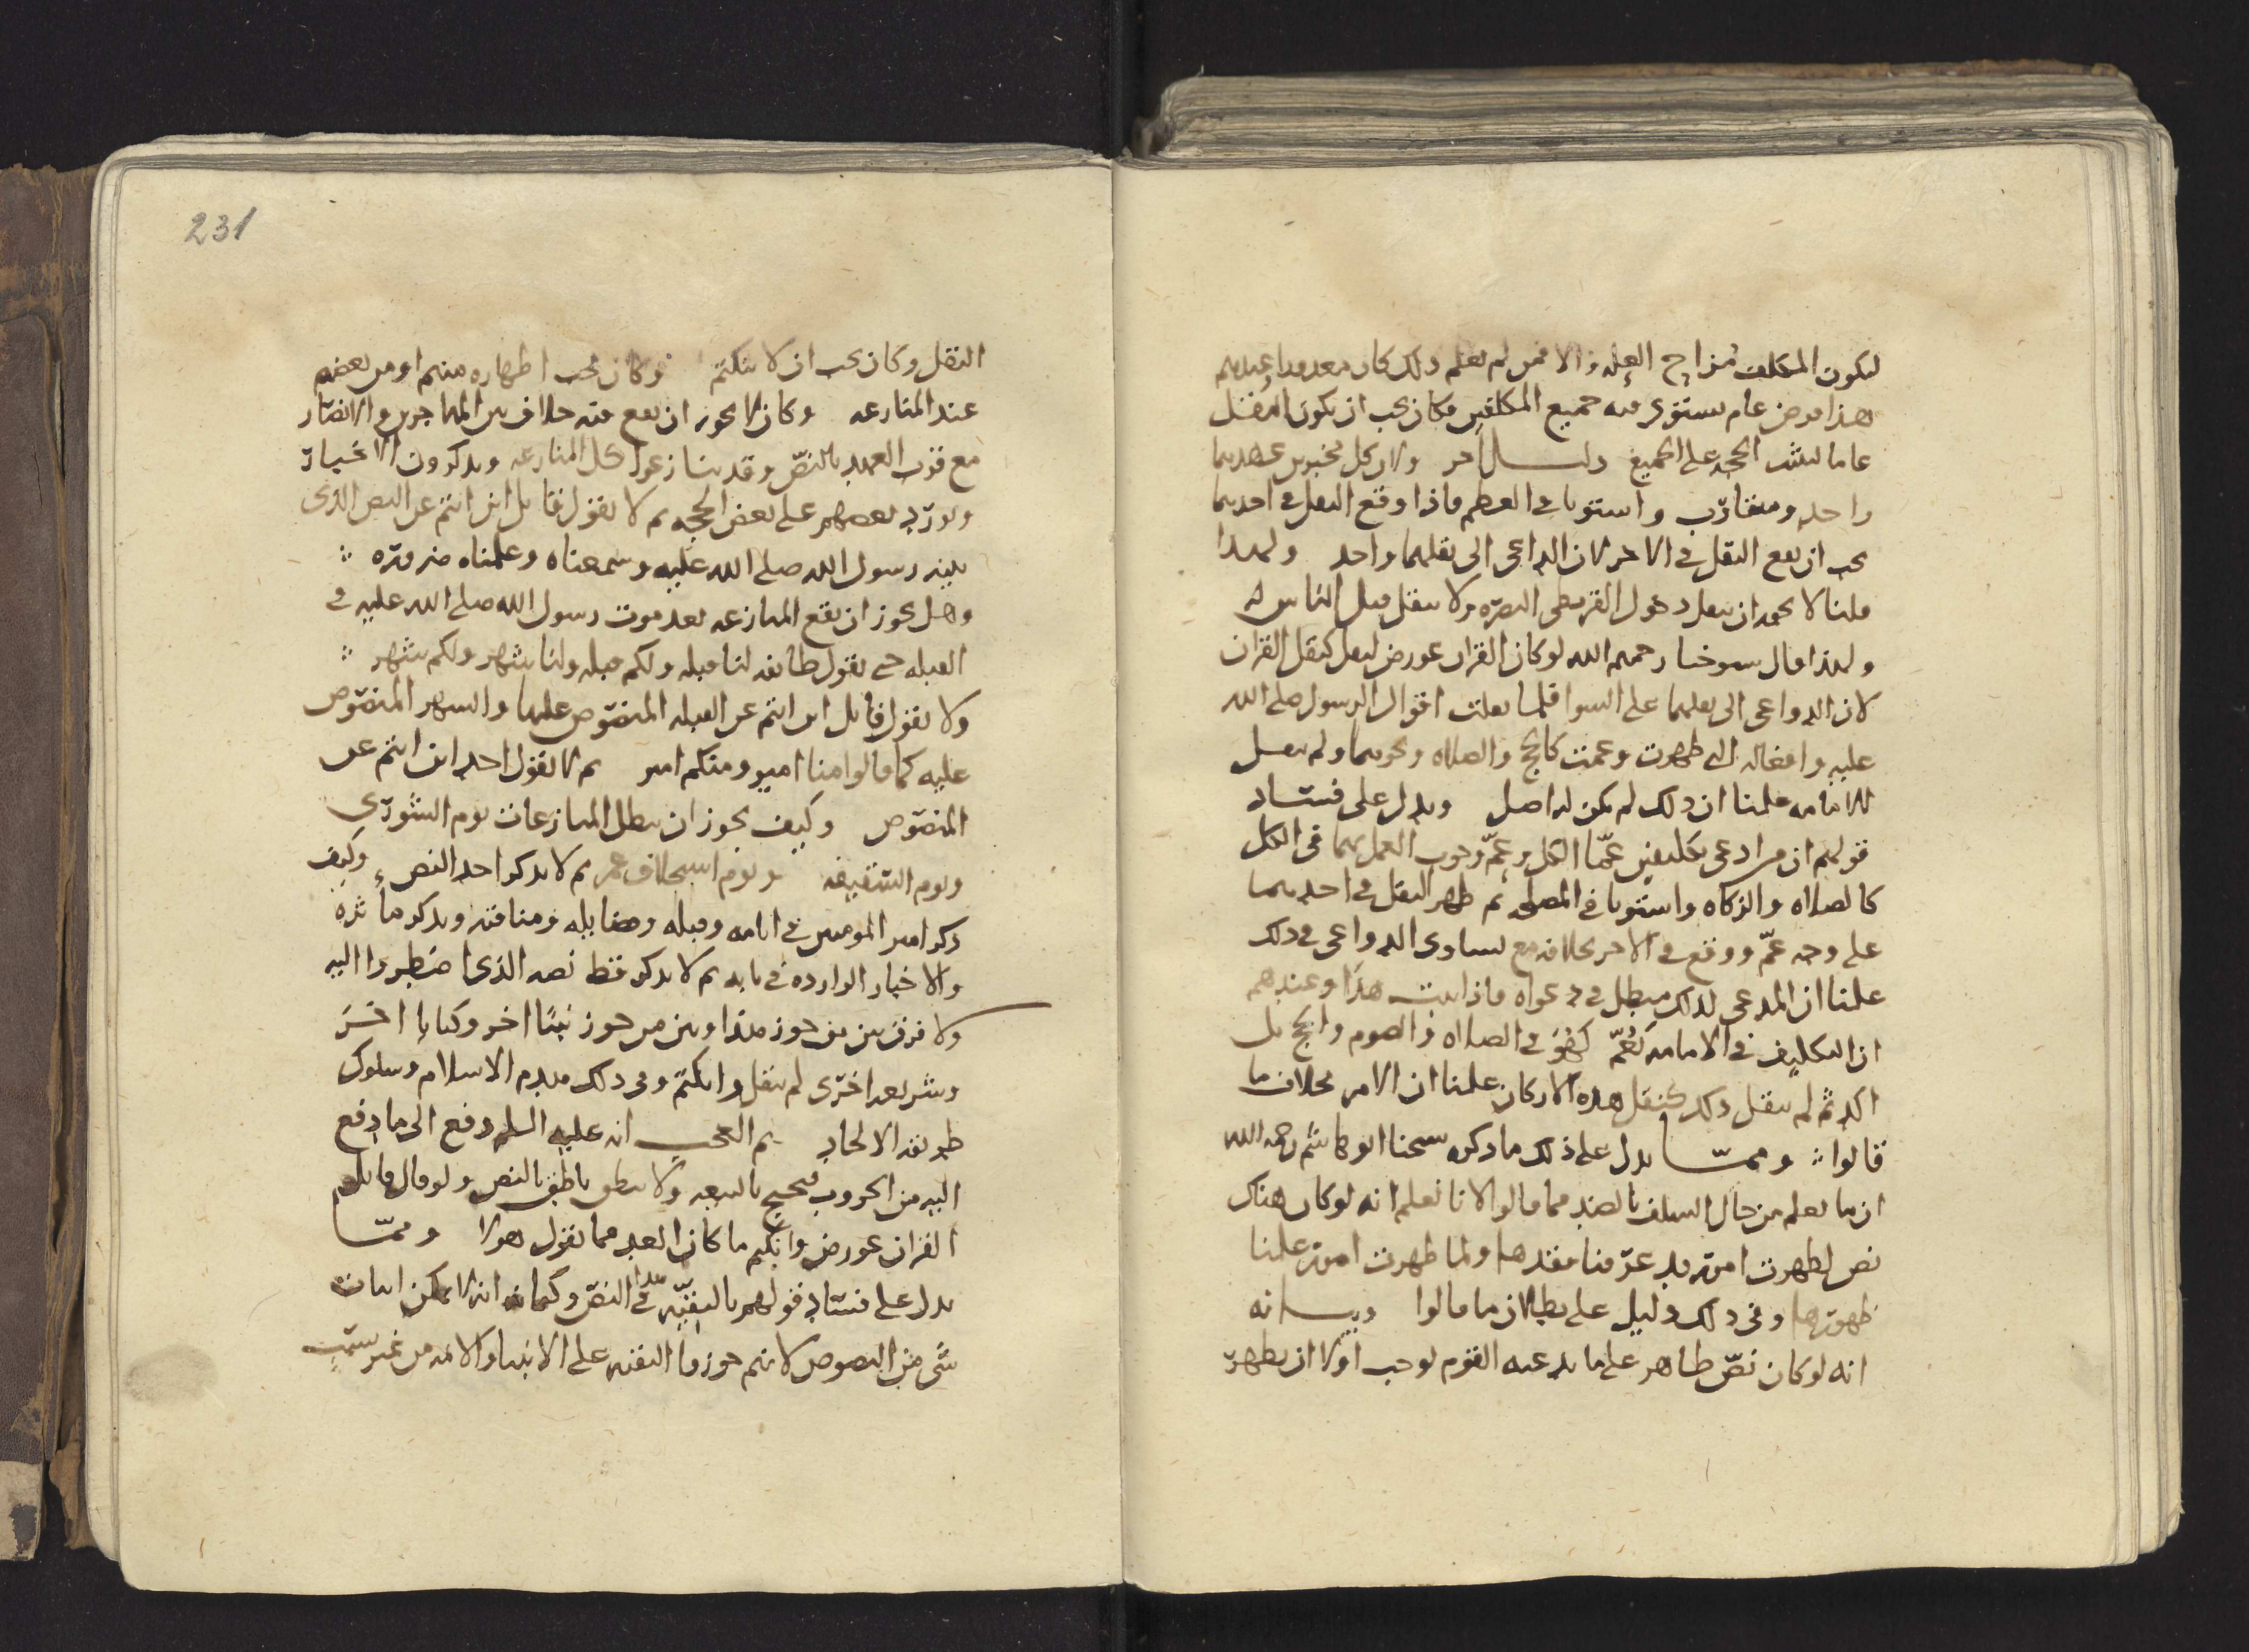 ليكون المكلف مزاح العله والا فمن لم يعلم ذلك كان معذورا وعندهم
هذا فرض عام يستوى فيه جميع المكلفين فكان يجب ان يكون النقل
عاما لتثبت الحجه على الجميع دليل اخر ولان كل مخبرين عهدهما
واحد ومتقارب واستويا في العظم فاذا وقع النقل في احدهما
يجب ان يقع النقل في الاخر لان الداعى الى نقلهما واحد ولهذا
قلنا لا يجوز ان ينقل دخول القرمطى البصره ولا ينقل قتل الناس له
ولهذا قال شيوخنا رحمهم الله لو كان القران عورض لنقل كنقل القران
لان الدواعى الى نقلهما على السوا فلما نقلت اقوال الرسول صلى الله
عليه وافعاله التى ظهرت وعمت كالحج والصلاه ونحوهما ولم ينقل
الامامه علمنا ان ذلك لم يكن له اصل ويدل على فساد
قولهم ان من ادعى تكليفين عمّا الكل وعمّ وجوب العمل بهما في الكل
كالصلاه والزكاه واستويا في المصلحه ثم ظهر النقل في احدهما
على وجه عمّ ووقع في الاخر بخلافه مع تساوى الدواعى في ذلك
علمنا ان المدعى لذلك مبطل في دعواه فاذا ثبت هذا وعندهم
ان التكليف في الامامه يعُمّ كهُوَ في الصلاه والصوم والحج بل
اكد ثم لم ينقل ذلك كنقل هذه الاركان علمنا ان الامر بخلاف ما
قالوا ∴ وممّا يدل على ذلك ما ذكره شيخنا ابو هاشم رحمه الله
ان ما نعلم من حال السلف بالضد مما قالوا لانا نعلم انه لو كان هناك
نص لظهرت امور قد عرّفنا فقدها ولما ظهرت امور علمنا
ظهورها وفي ذلك دليل على بطلان ما قالوا وبيانه
انه لو كان نصّ ظاهر على ما يدعيه القوم لوجب اولا ان يظهر
231
النقل وكان يجب ان لا ينكتم وكان يجب اظهاره منهم او من بعضهم
عند المنازعه وكان لا يجوز ان يقع فيه خلاف بين المهاجرين والانصار
مع قرب العهد بالنصّ وقد تنازعوا كل المنازعه ويذكرون الاخبار
ويورد بعضهم على بعض الحجه ثم لا يقول قايل اين انتم عن النص الذى
بينه رسول الله صلى الله عليه وسمعناه وعلمناه ضروره ∴
وهل يجوز ان يقع المنازعه بعد موت رسول الله صلى الله عليه في
القبله حتى يقول طايفه لنا قبله ولكم قبله ولنا شهر ولكم شهر ∴
ولا يقول قايل اين انتم عن القبله المنصوص عليها والشهر المنصوص
عليه كما قالوا منا امير ومنكم امير ثم لا يقول احد اين انتم عن
المنصوص وكيف يجوز ان يطل المنازعات يوم الشورى
ويوم السقيفه ويوم استخلاف عمر ثم لا يذكر احد النص وكيف
ذكر امير المومنين في ايامه وقبله وفضايله ومناقبه ويذكر ماثره
والاخبار الوارده في بابه ثم لا يذكر قط نصه الذى اضطروا اليه
ولا فرق بين من جوز هذا وبين من جوز نبيّا اخر وكتابا اخر
وشريعه اخرى لم ينقل وانكتم وفي ذلك هدم الاسلام وسلوك
طريقه الالحاد ثم العجب انه عليه السلم دفع الى ما دفع
اليه من الحروب فيحتج بالبيعه ولا ينطق ناطق بالنص ولو قال قايلهم
القران عورض وانكتم ما كان ابعد مما يقول هولا وممّا
يدل على فساد قولهم بالتقيّه في هذا النصّ وكتمانه انه لا يمكن اثبات
شى من النصوص لانهم جوزوا التقيه على الانبيا والائمه من غير سبب